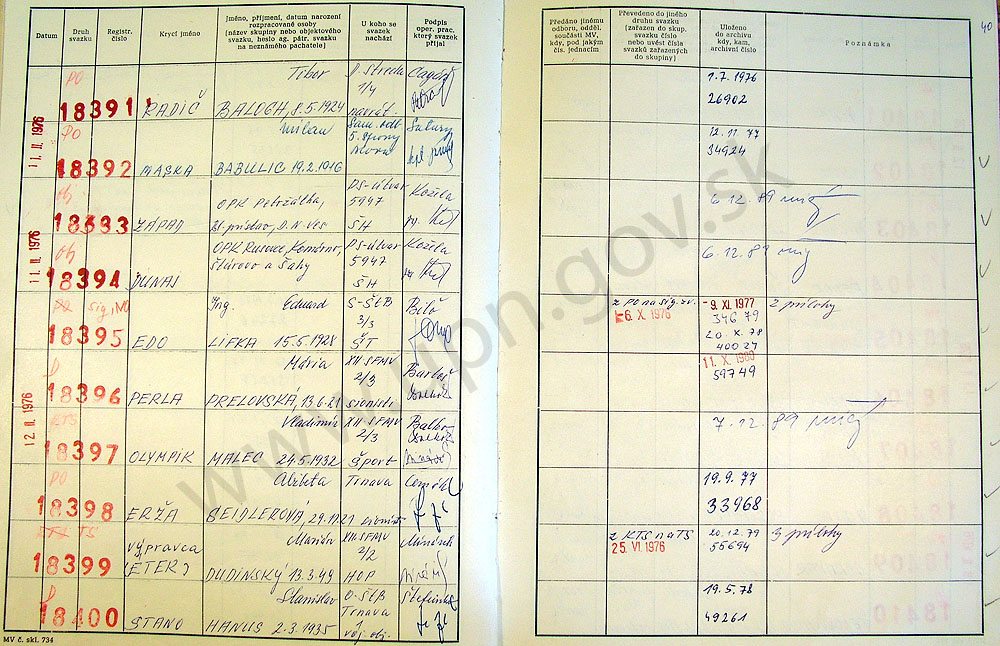 Datum
Druh svazku
Registr. číslo
Krycí jméno
Jméno, příjmení, datum narození rozpracované osoby (název skupiny nebo objektového svazku, heslo ag. pátr. svazku na neznámého pachatele)
U koho se svazek nachází
Podpis oper. prac. který svazek přijal
Předáno jinému odboru, odděl. součásti MV, kdy, pod jakým čís. jednacím
Převedeno do jiného druhu svazku (zařazen do skup. svazku číslo nebo uvést čísla svazků zařazených do skupiny)
Uloženo do archivu kdy, kam, archivní číslo
Poznámka
40
PO
18391
RADIČ
Tibor
BALOGH, 8.5.1924
D. Streda
1/4
1.7.1976
26902
11. II. 1976
PO
18392
MASKA
Milan
BABULIC 19.2.1916
12.11.77
34924
Obj
18393
ZÁPAD
OPK Petržalka,
D. N. Ves
OS-útvar
5947
ŠH
Kozela
6.12.89
11. II. 1976
Obj
18394
DUNAJ
OPK Rusovce, Komárno,
Štúrovo a Šahy
OS-útvar
5947
ŠH
Kozela
6.12.89
18395
EDO
Ing. Eduard
LIFKA 15.6.1928
S-ŠtB
3/3
ŠT
z PO na sig. zv.
6. X. 1976
-9. XI. 1977
34679
20. X. 78
40027
11. X. 1980
59749
2 prílohy
18396
PERLA
Mária
PRELOVSKÁ, 13.6.21
XII SFMV
2/3
sionisti
12. II. 1976
18397
OLYMPIK
Vladimír
MALEC 24.5.1932
XII SFMV
2/3
Šport
7.12.89
PO
18398
ERŽA
Alžbeta
SEIDLEROVÁ, 29.11.21
Trnava
sionisti
19.9.77
33968
TS
18399
Výpravca
(ÉTER)
Marián
DUDINSKÝ 13.3.49
XII SFMV
2/2
HOP
z KTS na TS
25. VI. 1976
20.12.79
55694
3 prílohy
18400
STANO
Stanislav
HANUS 2.3.1935
O-ŠtB
Trnava
19.5.78
49261
MV č. skl. 734
www.upn.gov.sk